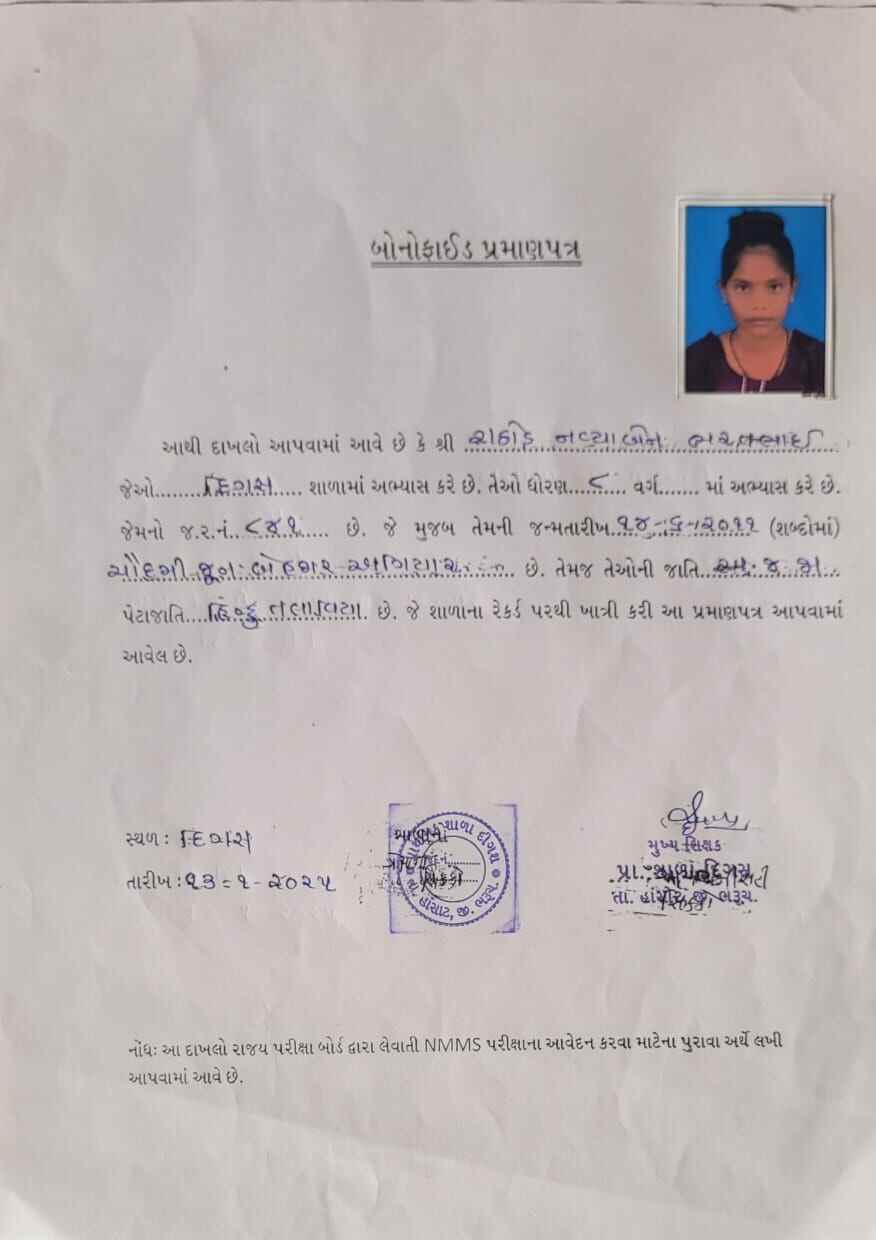 બોનોફાઈડ પ્રમાણપત્ર
આથી દાખલો આપવામાં આવે છે કે શ્રી રાઠોડ નવ્યાબેન ભરતભાઈ
જેઓ દિગસ શાળામાં અભ્યાસ કરે છે. તેઓ ધોરણ ૮ વર્ગ માં અભ્યાસ કરે છે.
જેમનો જ.ર.નં. ૮૪૧ છે. જે મુજબ તેમની જન્મતારીખ ૧૪-૬-૨૦૧૧ (શબ્દોમાં)
ચૌદમી જૂન બેહજાર અગિયાર છે. તેમજ તેઓની જાતિ અ.જ.જા
પેટાજાતિ હિન્દુ તલાવિયા છે. જે શાળાના રેકર્ડ પરથી ખાત્રી કરી આ પ્રમાણપત્ર આપવામાં
આવેલ છે.
સ્થળ: દિગસ
તારીખ: ૧૩-૧-૨૦૨૫
શાળાનો
સિક્કો
શાળા દીગસ
તા. હાંસોટ, જી. ભરૂચ.
મુખ્ય શિક્ષક
પ્રા. શાળા દિગસ
તા. હાંસોટ જી. ભરૂચ.
નોંધ: આ દાખલો રાજય પરીક્ષા બોર્ડ દ્વારા લેવાતી NMMS પરીક્ષાના આવેદન કરવા માટેના પુરાવા અર્થે લખી
આપવામાં આવે છે.